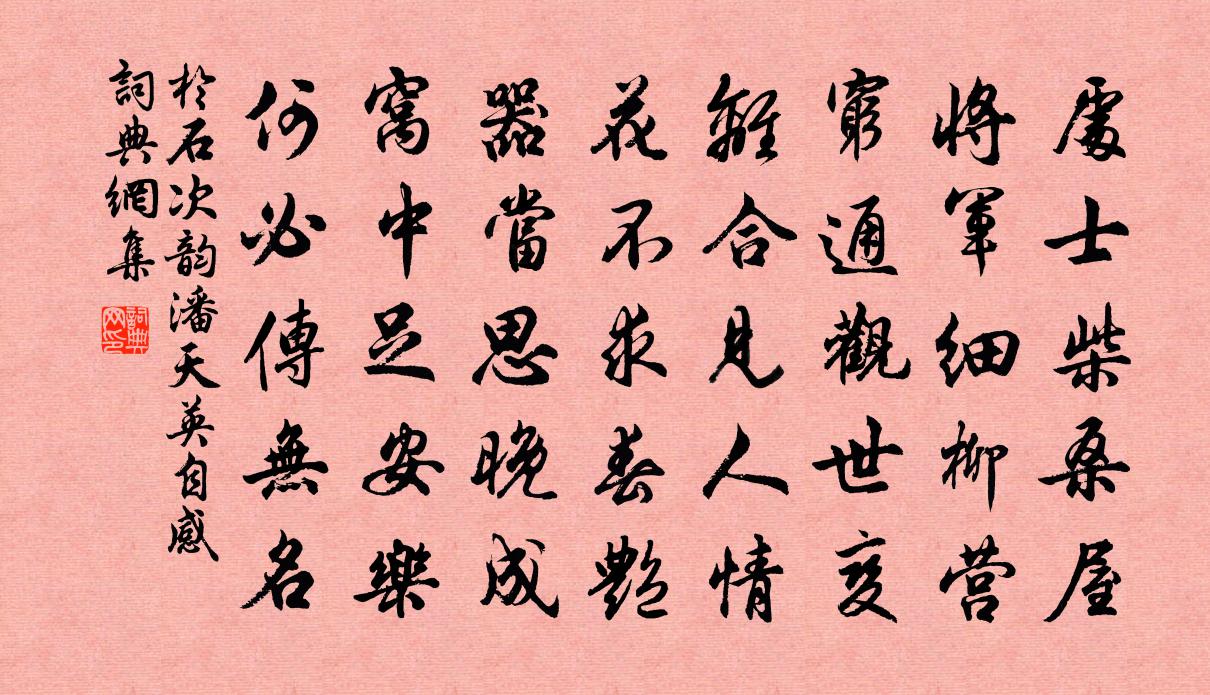 處士柴桑屋
將軍細柳营
窮通觀世变
離合見人情
花不求春艷
器當思晚成
窩中足安樂
何必傳無名
於石次韵潘天英自感
詞典網集
詞典网印